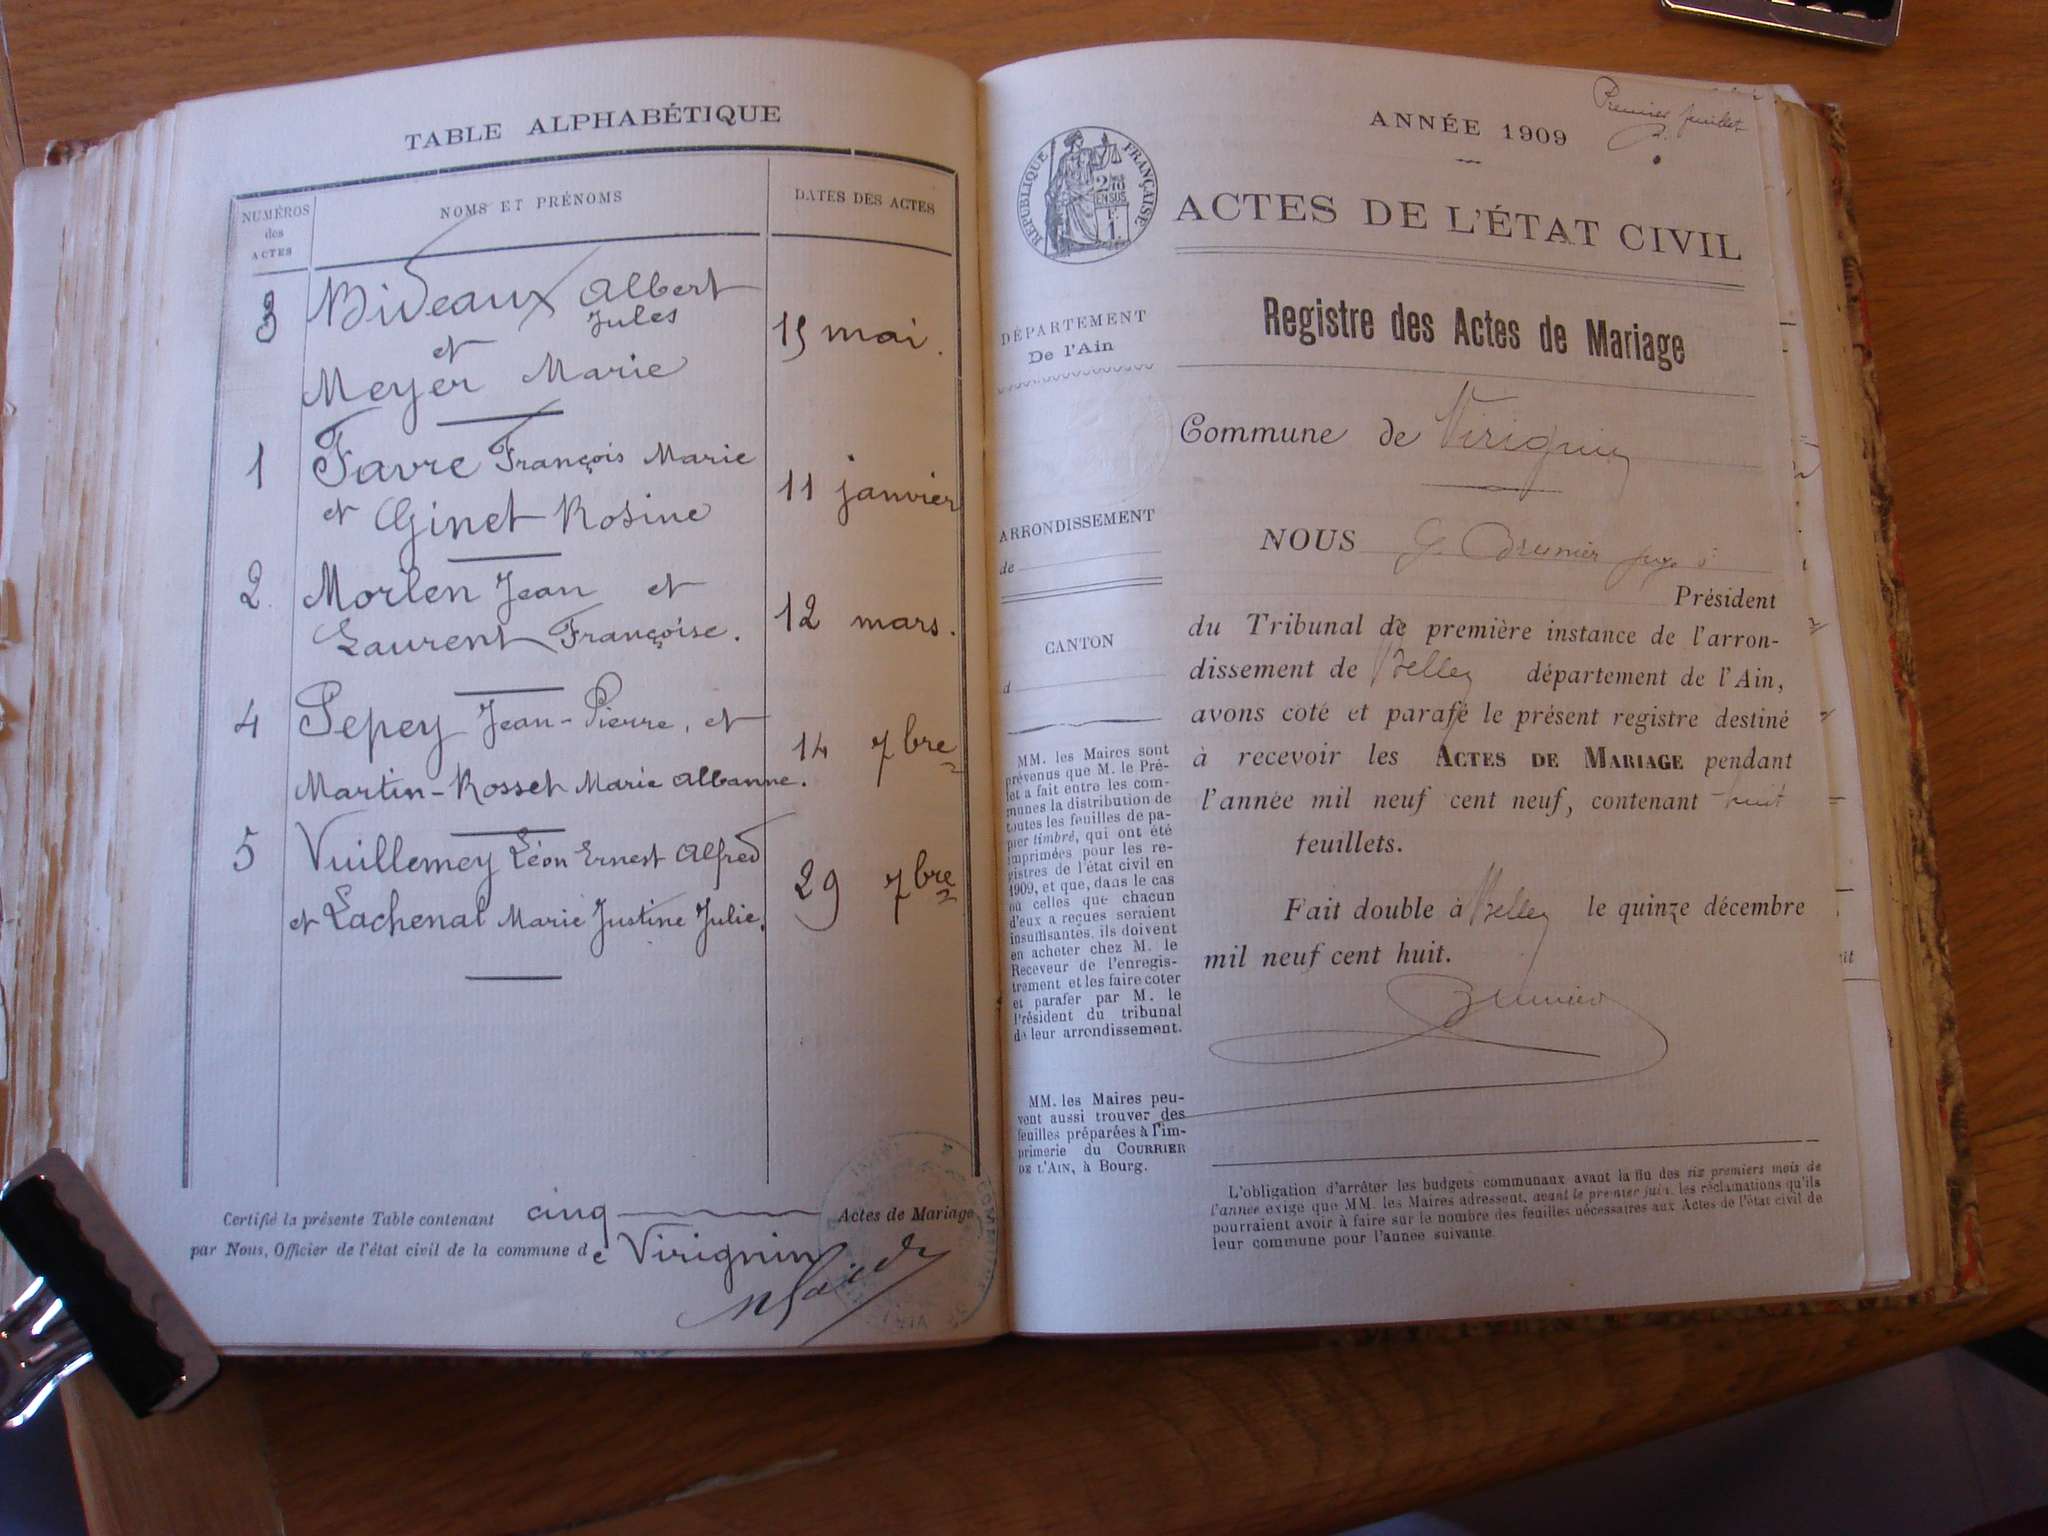 TABLE ALPHABÉTIQUE
NUMÉROS
des
ACTES
NOMS ET PRÉNOMS
DATES DES ACTES
3
Biveaux Albert
Jules
et
Meyer Marie
15 mai.
1
Favre François Marie
et Ginet Rosine
11 janvier
2
Morlen Jean et
Laurent Françoise.
12 mars.
4
Pepey Jean-Pierre, et
Martin-Rosset Marie Albanne.
14 7bre
5
Vuillemey Léon Ernest Alfred
et Lachenal Marie Justine Julie.
29 7bre
Certifié la présente Table contenant cinq Actes de Mariage
par Nous, Officier de l'état civil de la commune de Virignin
Premier feuillet
ANNÉE 1909
RÉPUBLIQUE FRANÇAISE
2/10
EN SUS
F.
1.
ACTES DE L'ÉTAT CIVIL
DÉPARTEMENT
De l'Ain
Registre des Actes de Mariage
Commune de Virignin
ARRONDISSEMENT
de
CANTON
d
MM. les Maires sont
prévenus que M. le Pré-
fet a fait entre les com-
munes la distribution de
toutes les feuilles de pa-
pier timbré, qui ont été
imprimées pour les re-
gistres de l'état civil en
1909, et que, dans le cas
où celles que chacun
d'eux a reçues seraient
insuffisantes, ils doivent
en acheter chez M. le
Receveur de l'enregis-
trement et les faire coter
et parafer par M. le
Président du tribunal
de leur arrondissement.
MM. les Maires peu-
vent aussi trouver des
feuilles préparées à l'im-
primerie du COURRIER
DE L'AIN, à Bourg.
NOUS G. Brunier
Président
du Tribunal de première instance de l'arron-
dissement de Belley département de l'Ain,
avons coté et parafé le présent registre destiné
à recevoir les ACTES DE MARIAGE pendant
l'année mil neuf cent neuf, contenant huit
feuillets.
Fait double à Belley le quinze décembre
mil neuf cent huit.
Brunier
L'obligation d'arrêter les budgets communaux avant la fin des six premiers mois de
l'année exige que MM. les Maires adressent, avant le premier juin, les réclamations qu'ils
pourraient avoir à faire sur le nombre des feuilles nécessaires aux Actes de l'état civil de
leur commune pour l'année suivante.